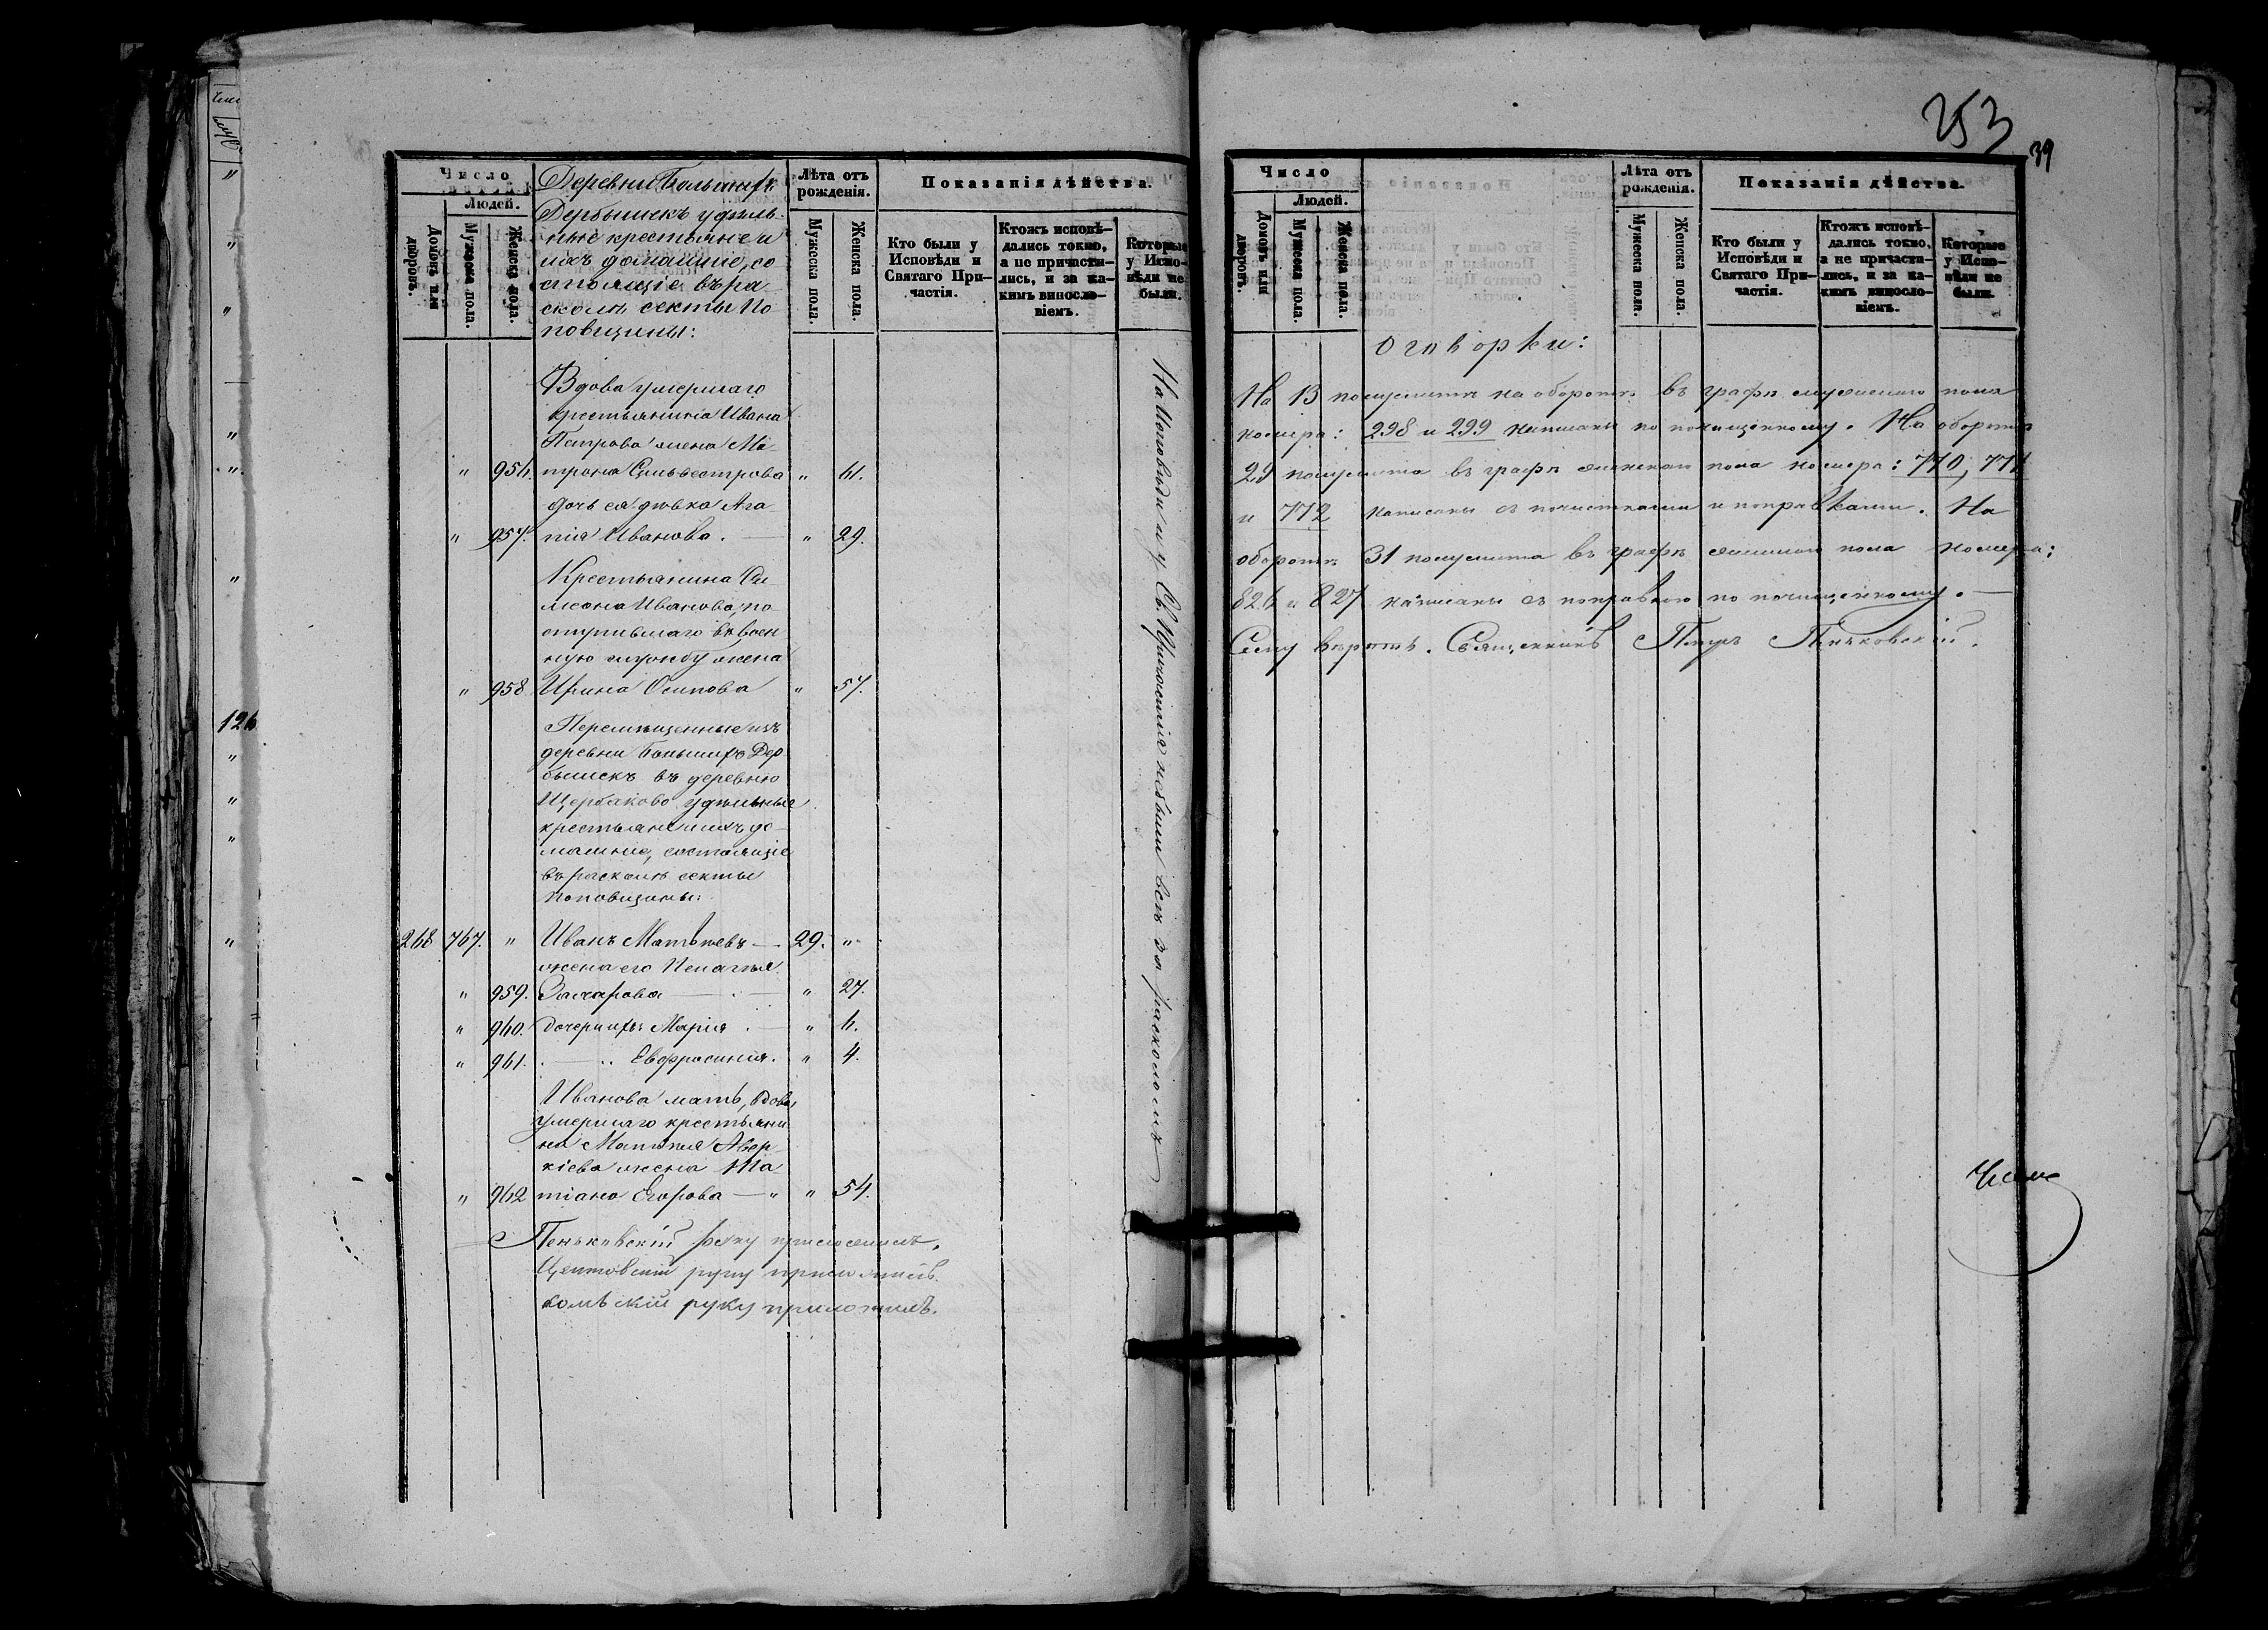 Число
Людей.
Домовъ или дворовъ.
Мужеска пола.
Женска пола.
Деревни Большихъ
Дербышекъ удѣль-
ные крестьяне и
ихъ домашніе, со-
стоящіе въ ра-
сколѣ секты По-
повщины:
Лѣта отъ рожденія.
Мужеска пола.
Женска пола.
Показанія дѣйства.
Кто были у Исповѣди и Святаго При-частія.
Ктожъ исповѣ-дались токмо, а не причасти-лись, и за ка-кимъ винословіемъ.
Которые у Испо-вѣди не были.
Вдова умершаго
крестьянина Ивана
Петрова жена Ма-
" 956. трона Сильвестрова " 61.
дочь ея дѣвка Ага-
" 957. пія Иванова. — " 29.
Крестьянина Си-
меона Иванова, по-
ступившаго въ воен-
ную службу жена
" 958 Ирина Осипова " 57.
Перемѣщенные изъ
деревни Большихъ Дер-
бышекъ въ деревню
Щербаково удѣльные
крестьяне и ихъ до-
машніе, состоящіе
въ расколѣ секты
Поповщины:
268 767. " Иванъ Матвѣевъ — 29. "
жена его Пелагія
" 959. Захарова — " 27.
" 960. дочери ихъ Марія. — " 6.
" 961. — " Евфросинія. " 4.
Иванова мать, вдова,
умершаго крестьяни-
на Матвѣя Авер-
кіева жена Та-
" 962 тіана Егорова — " " 54.
Пеньковскій руку приложилъ.
руку приложилъ.
руку приложилъ.
На Исповѣди и у Св. Причастія не были всѣ за расколомъ
126
253
39
Число
Людей.
Домовъ или дворовъ.
Мужеска пола.
Женска пола.
Лѣта отъ рожденія.
Мужеска пола.
Женска пола.
Показанія дѣйства.
Кто были у Исповѣди и Святаго При-частія.
Ктожъ исповѣ-дались токмо, а не причасти-лись, и за ка-кимъ винословіемъ.
Которые у Испо-вѣди не были.
Оговорки:
На 13 полулистѣ на оборотѣ въ графѣ мужескаго пола
номера: 298 и 299 написаны по почищенному. На оборотѣ
29 полулиста въ графѣ женскаго пола номера: 770, 771
и 772 написаны съ почистками и поправками. На
оборотѣ 31 полулиста въ графѣ женскаго пола номера:
826 и 827 написаны съ поправкою по почищенному. —
Сему вѣритъ. Священникъ Петръ Пеньковскій.